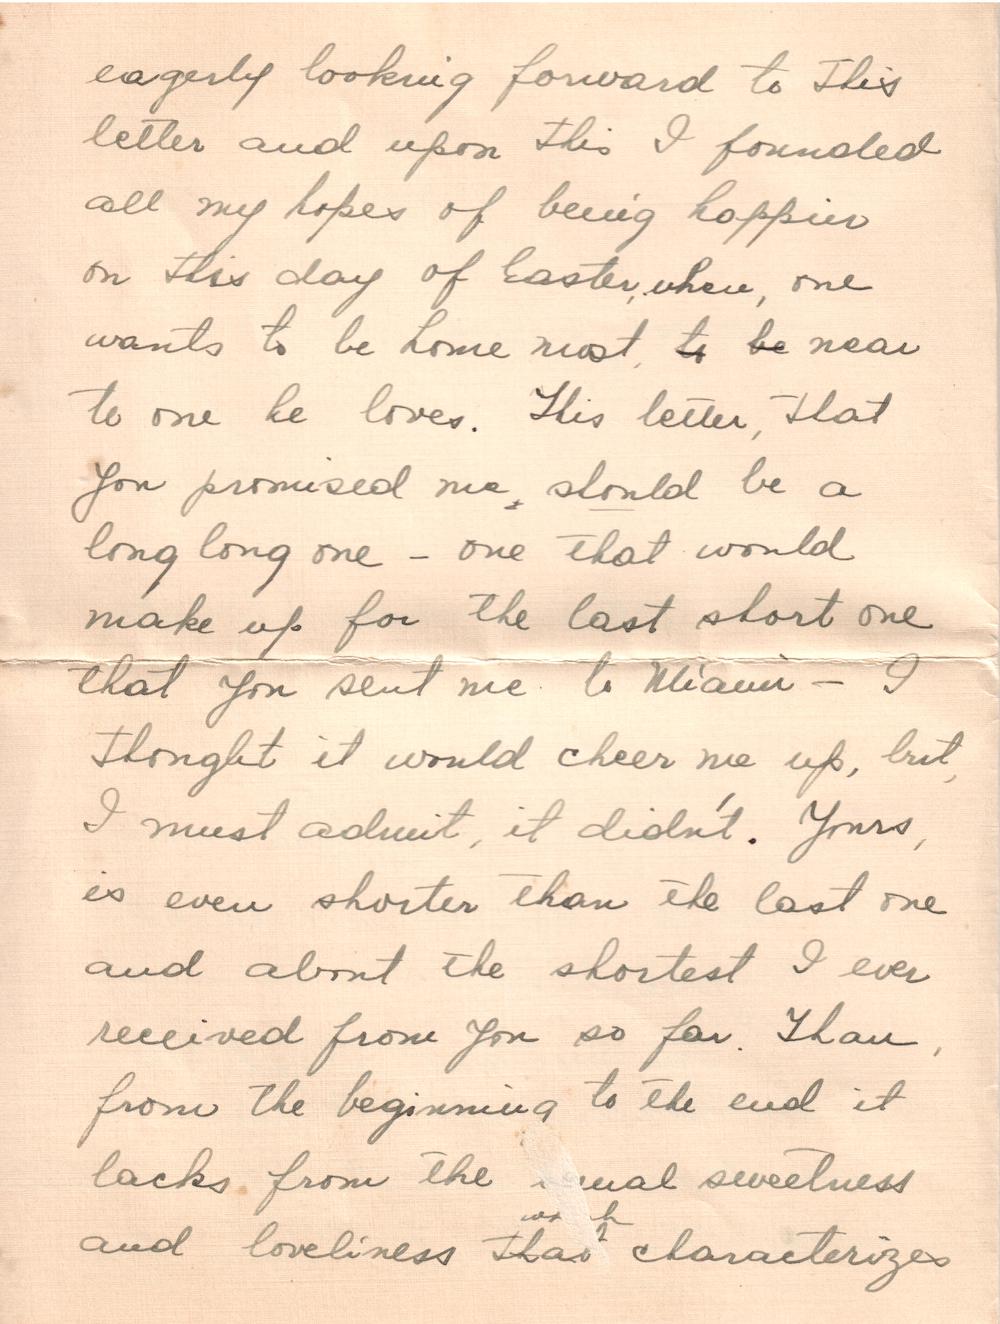 eagerly looking forward to this
letter and upon this I founded
all my hopes of being happier
on this day of Easter, when, one
wants to be home most, to be near
to one he loves. This letter, that
you promised me, should be a
long long one – one that would
make up for the last short one
that you sent me to Miami – I
thought it would cheer me up, but,
I must admit, it didn't. Yours,
is even shorter than the last one
and about the shortest I ever
received from you so far. Than,
from the beginning to the end it
lacks from the usual sweetness
and loveliness that characterizes